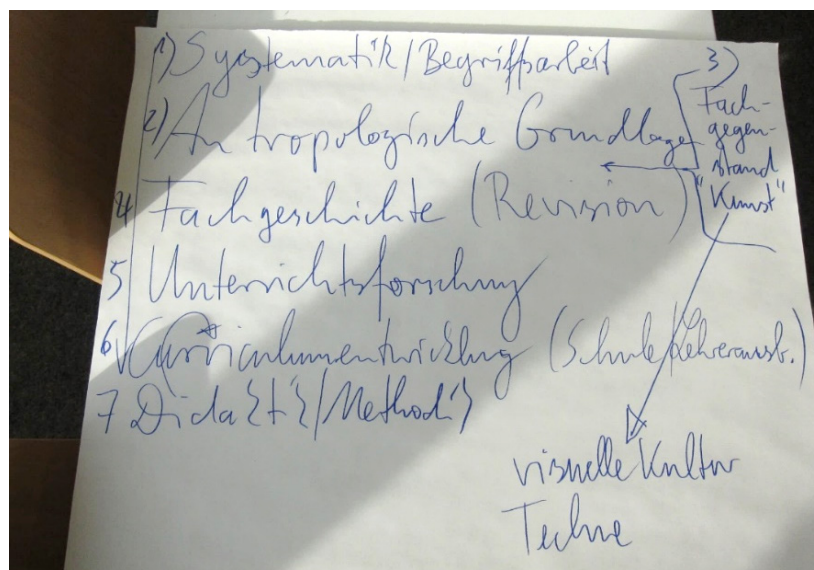 1) Systematik/Begriffsarbeit
2) Antropologische Grundlagen
3)
Fach-
gegen-
stand
"Kunst"
4 Fachgeschichte (Revision)
5 Unterrichtsforschung
6 Curriculumentwicklung (Schule/Lehrerausb.)
7 Didaktik/Methodik
visuelle Kultur
Techne